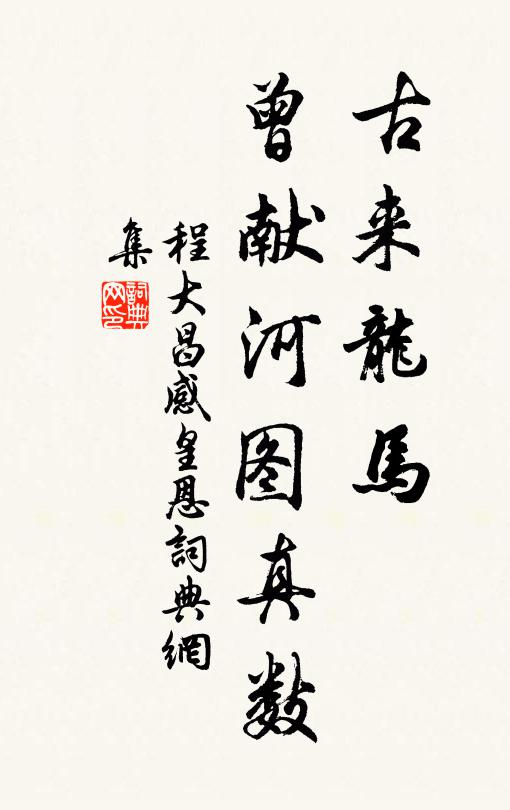 古来龍馬
曾献河图真数
程大昌感皇恩詞典網
集
詞典
网印